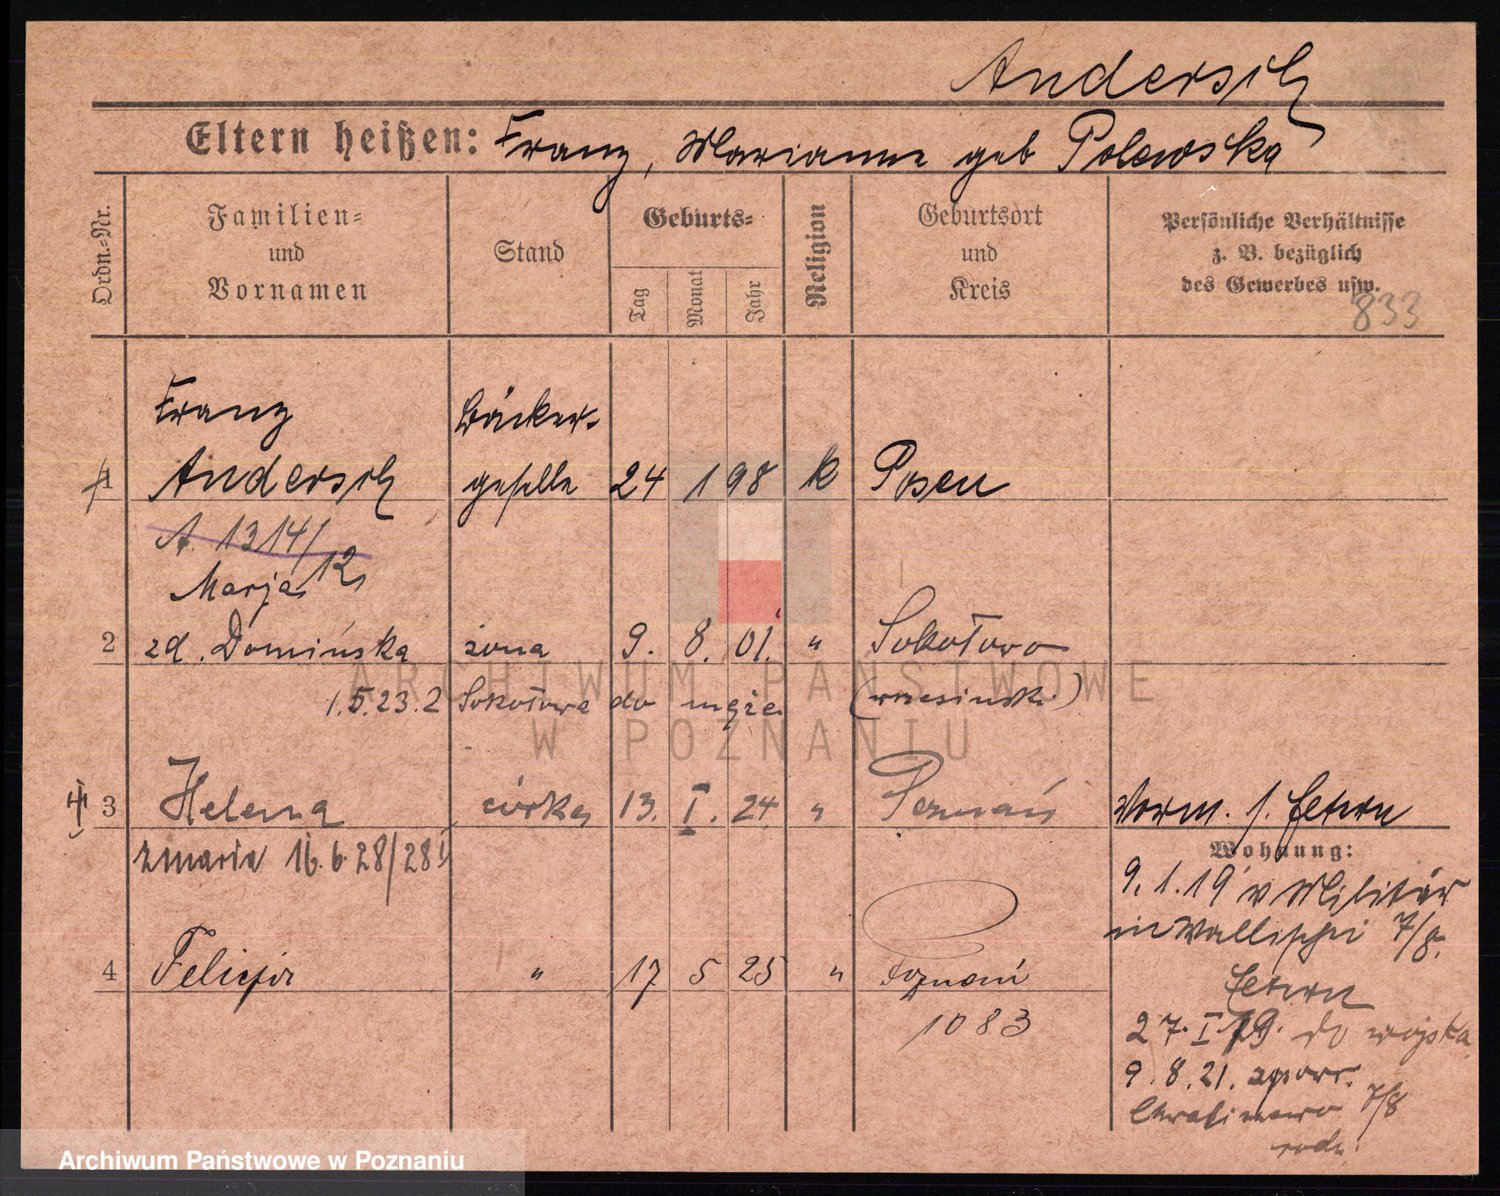 Andersch
Eltern heißen: Franz, Marianne geb Polewska
Ordn.-Nr.
Familien-
und
Vornamen
Stand
Geburts-
Tag
Monat
Jahr
Religion
Geburtsort
und
Kreis
Persönliche Verhältnisse
z. B. bezüglich
des Gewerbes usw.
833
Franz Bäcker-
1 Andersch geselle 24 1 98 k Posen
A. 1314/12
Marja
2 zd. Domińska żona 9. 8. 01. " Sokołowo
1.5.23. z Sokołowa do męża (wrzesiński)
3 Helena córka 13. I. 24. " Poznań
Vorm. s. Eltern
zmarła 16.6.28/28
Wohnung:
9.1.19 v Militär
in Wallischei 7/8.
4 Felicja " 17 5 25 " Poznań
Eltern
1083
27. I. 19. do wojska
9.8.21. zpowr.
Chwaliszewo 7/8
rodz.
ARCHIWUM PAŃSTWOWE
W POZNANIU
Archiwum Państwowe w Poznaniu